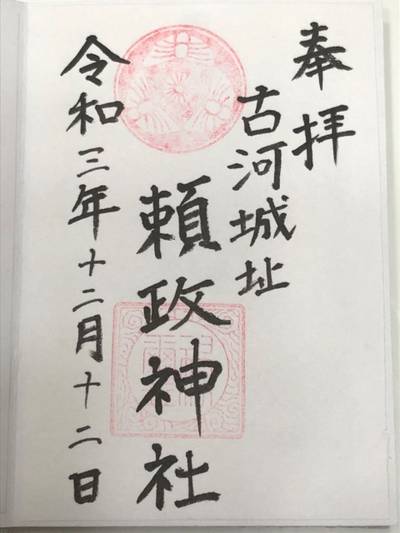 奉拝
古河城址
頼政神社
令和三年十二月十二日